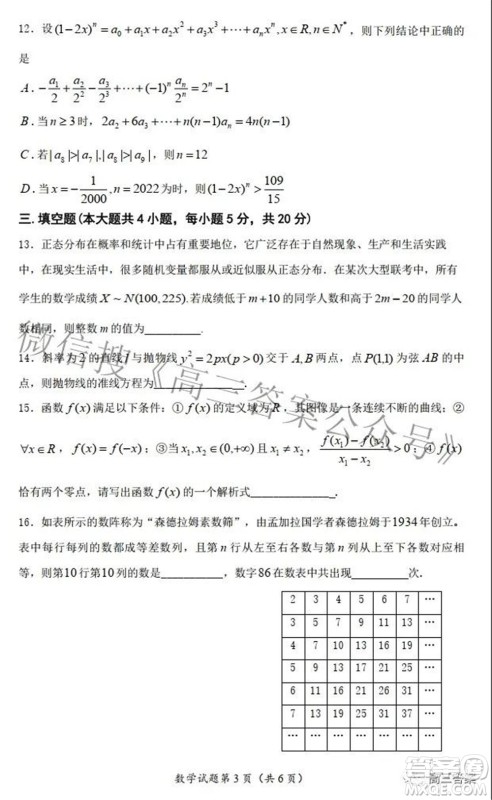 12．设 (1－2x)ⁿ = a₀ + a₁x + a₂x² + a₃x³ + ⋯ + aₙxⁿ, x∈R, n∈N*，则下列结论中正确的
是
A．－a₁/2 + a₂/2² － a₃/2³ + ⋯ + (－1)ⁿ aₙ/2ⁿ = 2ⁿ－1
B．当 n≥3 时，2a₂ + 6a₃ + ⋯ + n(n－1)aₙ = 4n(n－1)
C．若 |a₈|>|a₇|,|a₈|>|a₉|，则 n=12
D．当 x=－1/2000, n=2022 为时，则 (1－2x)ⁿ > 109/15
三．填空题(本大题共 4 小题，每小题 5 分，共 20 分)
13．正态分布在概率和统计中占有重要地位，它广泛存在于自然现象、生产和生活实践
中，在现实生活中，很多随机变量都服从或近似服从正态分布．在某次大型联考中，所有
学生的数学成绩 X ~ N(100,225)．若成绩低于 m+10 的同学人数和高于 2m－20 的同学人
数相同，则整数 m 的值为________．
14．斜率为 2 的直线 l 与抛物线 y²=2px(p>0) 交于 A,B 两点，点 P(1,1) 为弦 AB 的中
点，则抛物线的准线方程为________．
15．函数 f(x) 满足以下条件：① f(x) 的定义域为 R，其图像是一条连续不断的曲线；②
∀x∈R，f(x)=f(－x)；③当 x₁,x₂∈(0,+∞) 且 x₁≠x₂，(f(x₁)－f(x₂))/(x₁－x₂)>0；④ f(x)
恰有两个零点，请写出函数 f(x) 的一个解析式________．
16．如表所示的数阵称为“森德拉姆素数筛”，由孟加拉国学者森德拉姆于1934年创立．
表中每行每列的数都成等差数列，且第 n 行从左至右各数与第 n 列从上至下各数对应相
等，则第10行第10列的数是________，数字86在数表中共出现________次．
2 3 4 5 6 7 …
3 5 7 9 11 13 …
4 7 10 13 16 19 …
5 9 13 17 21 25 …
6 11 16 21 26 31 …
7 13 19 25 31 37 …
… … … … … … …
数学试题第 3 页（共 6 页）
微信搜《高三答案公众号》
高三答案